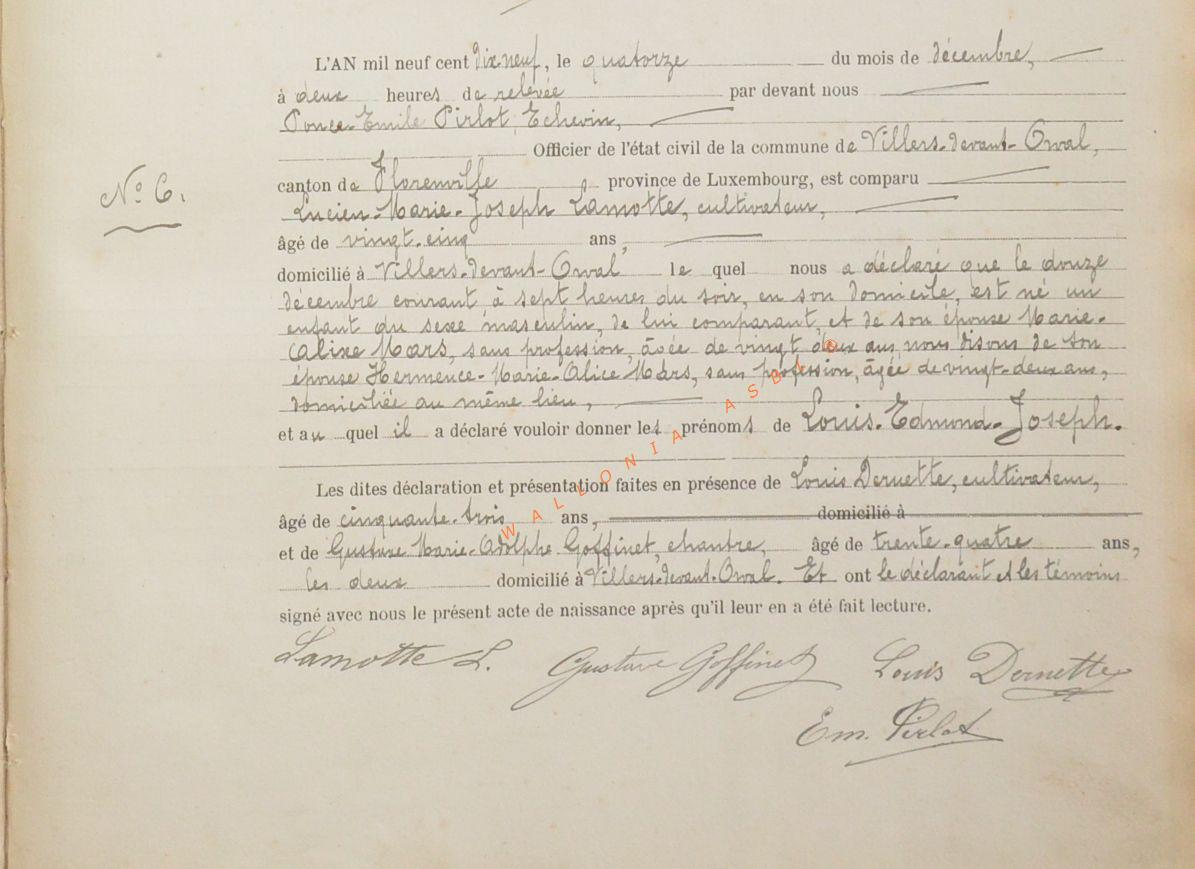 L'AN mil neuf cent dix neuf, le quatorze du mois de décembre,
à deux heures de relevée par devant nous
Ponce-Emile Pirlot, Echevin,
Officier de l'état civil de la commune de Villers-devant-Orval,
N° 6.
canton de Florenville province de Luxembourg, est comparu
Lucien-Marie-Joseph Lamotte, cultivateur,
âgé de vingt-cinq ans,
domicilié à Villers-devant-Orval le quel nous a déclaré que le douze
décembre courant à sept heures du soir, en son domicile, est né un
enfant du sexe masculin, de lui comparant, et de son épouse Marie-
Calixe Mars, sans profession, âgée de vingt deux ans, nous disons de son
épouse Hermence-Marie-Alice Mars, sans profession, âgée de vingt-deux ans,
domiciliée au même lieu,
et au quel il a déclaré vouloir donner les prénoms de Louis-Edmond-Joseph.
Les dites déclaration et présentation faites en présence de Louis Dernette, cultivateur,
âgé de cinquante-trois ans, domicilié à
et de Gustave Marie-Adolphe Goffinet, chantre, âgé de trente-quatre ans,
les deux domicilié à Villers-devant-Orval. Et ont le déclarant et les témoins
signé avec nous le présent acte de naissance après qu'il leur en a été fait lecture.
Lamotte L. Gustave Goffinet Louis Dernette
Em. Pirlot
WALLONIA ASBL ©